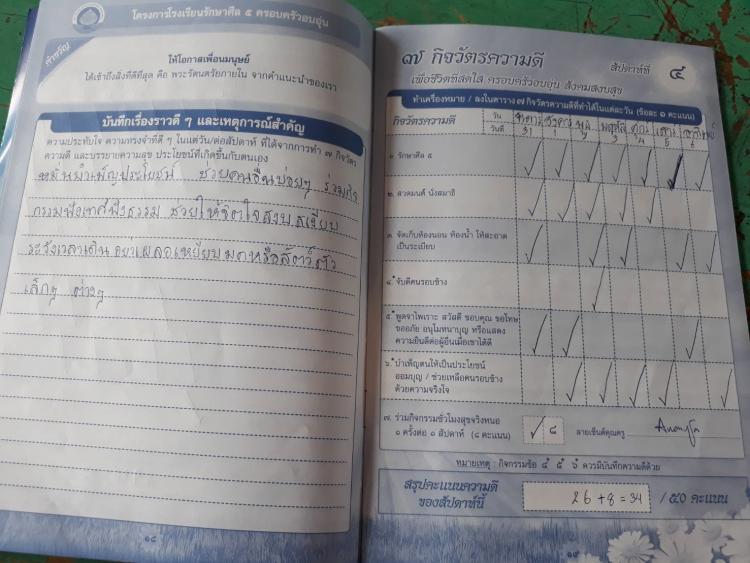 โครงการโรงเรียนรักษาศีล ๕ ครอบครัวอบอุ่น
คำขวัญ
ให้โอกาสเพื่อนมนุษย์
ได้เข้าถึงสิ่งที่ดีที่สุด คือ พระรัตนตรัยภายใน จากคำแนะนำของเรา
บันทึกเรื่องราวดี ๆ และเหตุการณ์สำคัญ
ความประทับใจ ความทรงจำที่ดี ๆ ในแต่วัน/ต่อสัปดาห์ ที่ได้จากการทำ ๗ กิจวัตร
ความดี และบรรยายความสุข ประโยชน์ที่เกิดขึ้นกับตนเอง
หมั่นบำเพ็ญประโยชน์ ช่วยคนอื่นบ่อยๆ ร่วมกิจ
กรรมฟังเทศฟังธรรม ช่วยให้จิตใจสงบ
ระวังเวลาเดิน อย่าเผลอเหยียบมดหรือสัตว์ตัว
เล็กๆ ต่างๆ
๑๘
๗ กิจวัตรความดี
สัปดาห์ที่ ๔
เพื่อชีวิตที่สดใส ครอบครัวอบอุ่น สังคมสงบสุข
ทำเครื่องหมาย / ลงในตาราง ๗ กิจวัตรความดีที่ทำได้ในแต่ละวัน (ข้อละ ๑ คะแนน)
กิจวัตรความดี
วัน จันทร์ อังคาร พุธ พฤหัส ศุกร์ เสาร์ อาทิตย์
วันที่ 31 1 2 3 4 5 6
๑. รักษาศีล ๕
๒. สวดมนต์ นั่งสมาธิ
๓. จัดเก็บห้องนอน ห้องน้ำ ให้สะอาด
เป็นระเบียบ
๔. จับดีคนรอบข้าง
๕. พูดจาไพเราะ สวัสดี ขอบคุณ ขอโทษ
ขออภัย อนุโมทนาบุญ หรือแสดง
ความยินดีต่อผู้อื่นเมื่อเขาได้ดี
๖. บำเพ็ญตนให้เป็นประโยชน์
ออมบุญ / ช่วยเหลือคนรอบข้าง
ด้วยความจริงใจ
๗. ร่วมกิจกรรมชั่วโมงสุขจริงหนอ
๑ ครั้งต่อ ๑ สัปดาห์ (๘ คะแนน)
๘
ลายเซ็นต์คุณครู
หมายเหตุ : กิจกรรมข้อ ๔ ๕ ๖ ควรมีบันทึกความดีด้วย
สรุปคะแนนความดี
ของสัปดาห์นี้
26 + 8 = 34 / ๕๐ คะแนน
๑๙